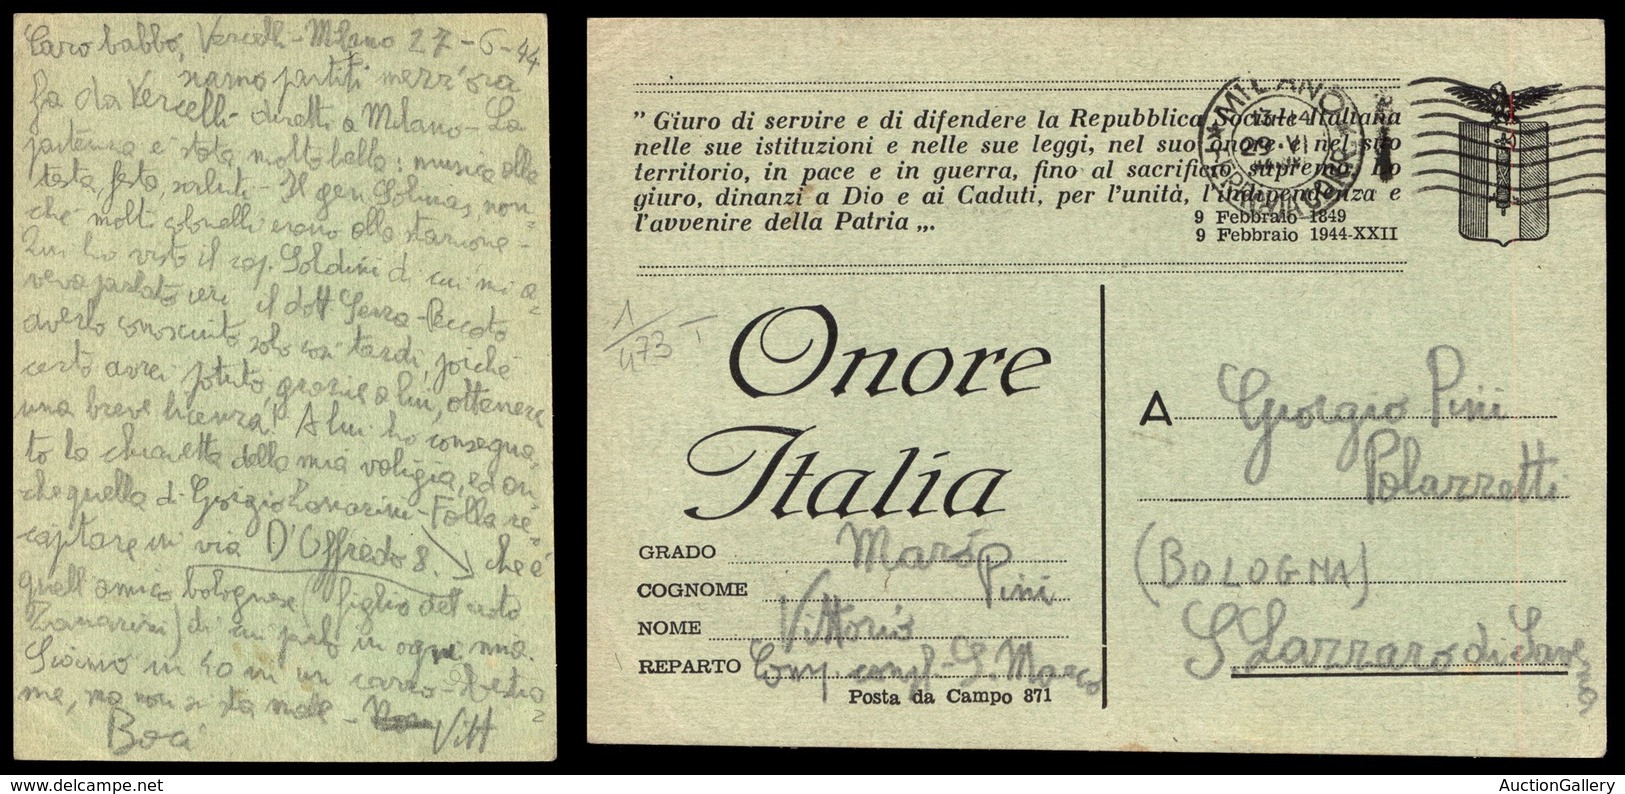 Caro babbo, Vercelli - Milano 27-6-44
siamo partiti mezz'ora
fa da Vercelli diretti a Milano - La
partenza è stata molto bella: musica alla
testa, festa, saluti - Il gen. Solinas, non=
ché molti colonnelli erano alla stazione -
Qui ho visto il cap. Soldini di cui mi a=
veva parlato ieri il dott. Serra - Peccato
averlo conosciuto solo così tardi, poiché
certo avrei potuto, grazie a lui, ottenere
una breve licenza! A lui ho consegna=
to la chiavetta della mia valigia, ed an=
che quella di Giorgio Zanarini - Falla re=
capitare in via D'Offredo 8. che è
quell'amico bolognese (figlio dell'
Zanarini) di cui parlo in ogni mia.
Siamo in 40 in un carro - bestia=
me, ma non si sta male -
Baci Vitt
" Giuro di servire e di difendere la Repubblica Sociale Italiana
nelle sue istituzioni e nelle sue leggi, nel suo onore e nel suo
territorio, in pace e in guerra, fino al sacrificio supremo. Lo
giuro, dinanzi a Dio e ai Caduti, per l'unità, l'indipendenza e
l'avvenire della Patria „.
9 Febbraio 1849
9 Febbraio 1944-XXII
MILANO
13-14
29·VI
1/473 T
Onore
Italia
A Giorgio Pini
Polazzetti
(BOLOGNA)
S Lazzaro di Savena
GRADO Marò
COGNOME Pini
NOME Vittorio
REPARTO Comp. compl. - S. Marco
Posta da Campo 871
AuctionGallery